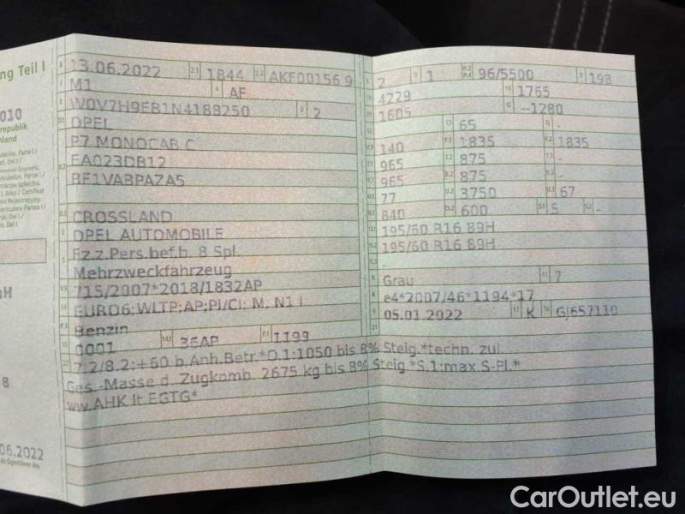 ng Teil I
010
republik
hland
aH
8
.06.2022
13.06.2022 1844 AKF00156 9
M1 AF
W0V7H9EB1N4188250 2
OPEL
P7 MONOCAB C
EA023DB12
BE1VABPAZA5
CROSSLAND
OPEL AUTOMOBILE
Fz.z.Pers.bef.b. 8 Spl.
Mehrzweckfahrzeug
715/2007*2018/1832AP
EURO6;WLTP;AP;PI/CI; M, N1 I
Benzin
0001 36AP 1199
7.2/8.2:+60 b.Anh.Betr.*O.1:1050 bis 8% Steig.*techn. zul
Ges.-Masse d. Zugkomb. 2675 kg bis 8% Steig *S.1:max S-Pl.*
ww.AHK lt.EGTG*
2 1 96/5500 198
4229 1765
1605 --1280
65 -
140 1835 1835
965 875 -
965 875 -
77 3750 67
840 600 5 -
195/60 R16 89H
195/60 R16 89H
Grau 7
e4*2007/46*1194*17
05.01.2022 K GJ657110
CarOutlet.eu